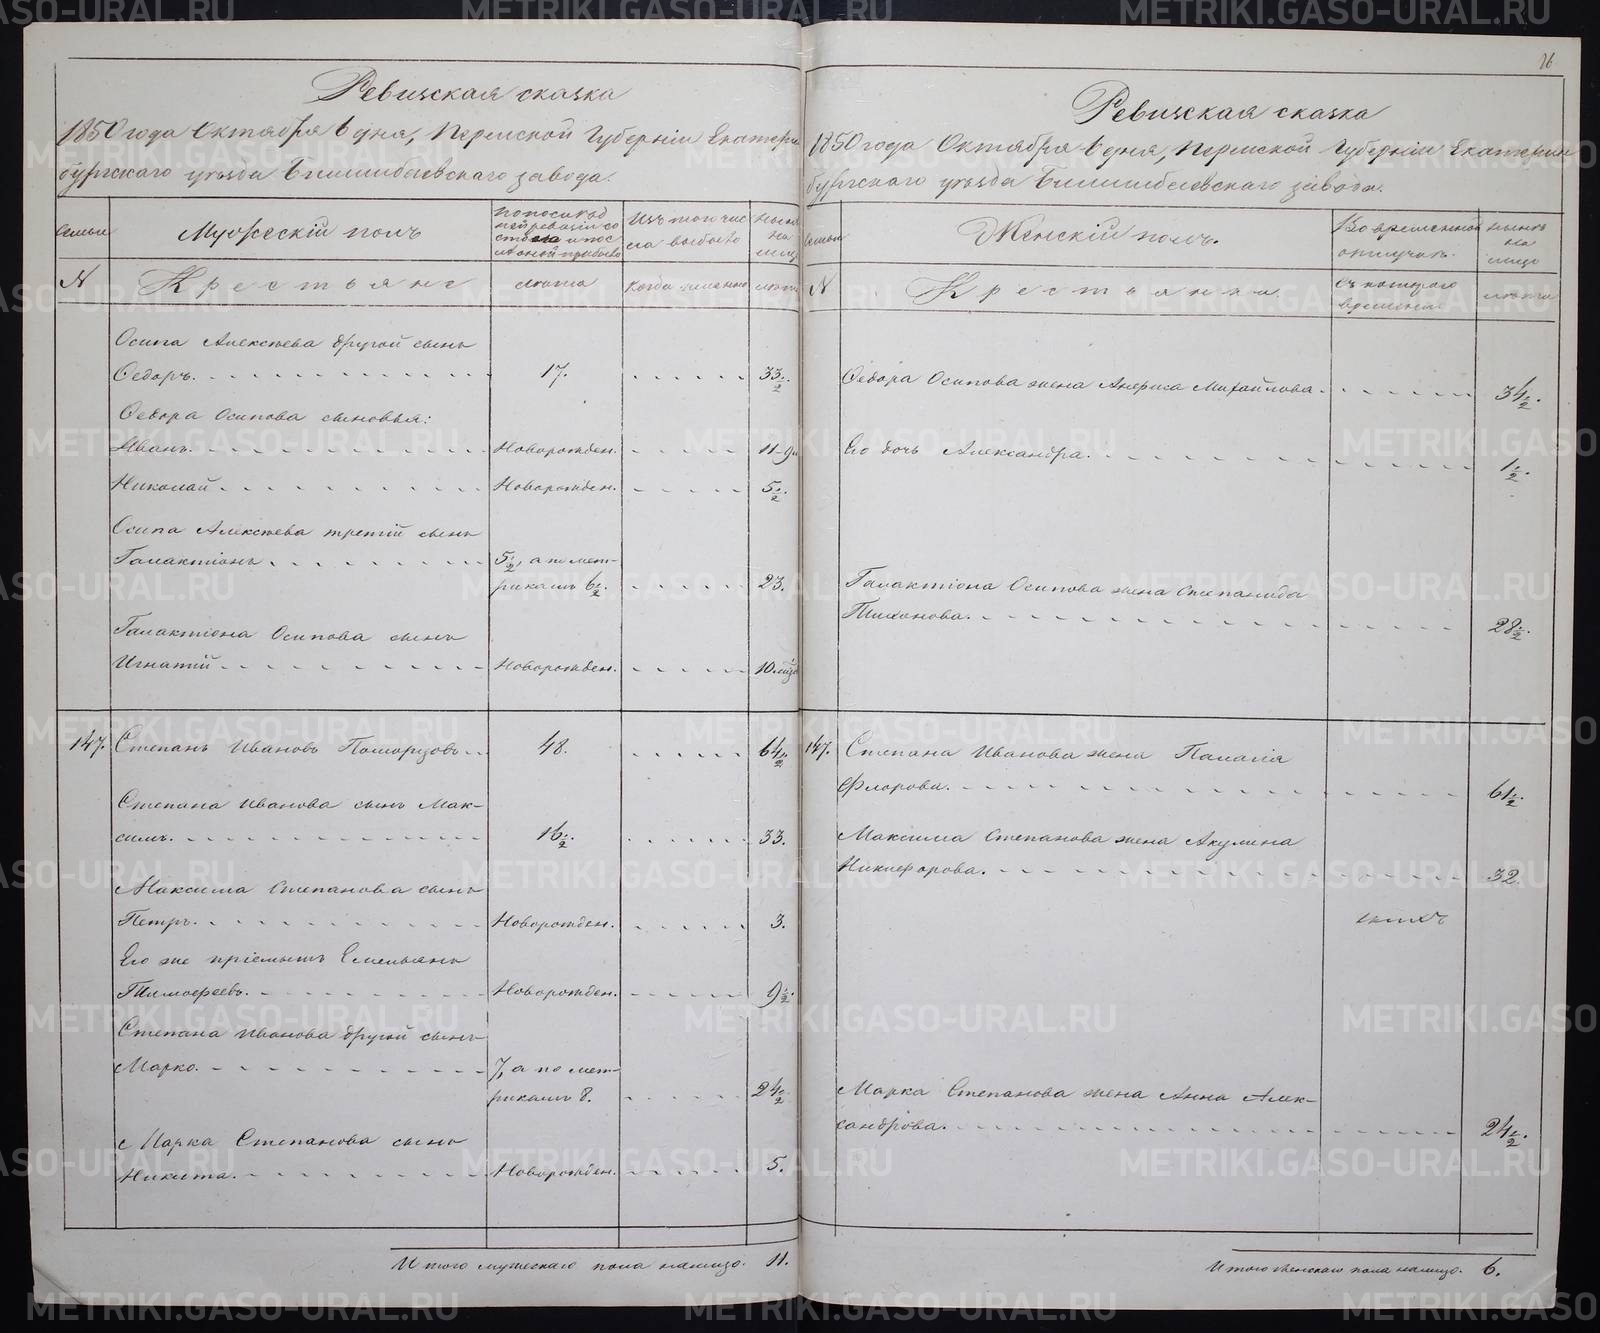 26
Ревизская сказка
1850 года Октября 6 дня, Пермской Губерніи Екатерин
бургскаго уѣзда Билимбаевскаго завода.
Семьи
Мужескій полъ
по послѣдней ревизіи состояло и после оной прибыло
Изъ того числа выбыло
нынѣ на лицо
№
Крестьяне
лѣта
когда именно
лѣта
Осипа Алексѣева другой сынъ
Ѳедоръ. 17. 33 1/2.
Ѳедора Осипова сыновья:
Иванъ. Новорожден. 11-9м
Николай Новорожден. 5 1/2.
Осипа Алексѣева третій сынъ
Галактіонъ 5 1/2, а по мет-
рикамъ 6 1/2. 23.
Галактіона Осипова сынъ
Игнатій Новорожден. 10.
147. Степанъ Ивановъ Поморцовъ 48. 64 1/2
Степана Иванова сынъ Мак-
симъ. 16 1/2. 33.
Максима Степанова сынъ
Петръ. Новорожден. 3.
Его же пріемышъ Емельянъ
Тимофеевъ. Новорожден. 9 1/2.
Степана Иванова другой сынъ
Марко. 7, а по мет-
рикамъ 8. 24 1/2
Марка Степанова сынъ
Никита. Новорожден. 5.
Итого мужескаго пола налицо. 11.
Ревизская сказка
1850 года Октября 6 дня, Пермской Губерніи Екатерин
бургскаго уѣзда Билимбаевскаго завода.
Семьи
Женскій полъ.
Во временной отлучкѣ.
нынѣ на лицо
№
Крестьянки
Съ котораго времени.
лѣта
Ѳедора Осипова жена Анфиса Михайлова. 34 1/2.
Его дочь Александра. 1 1/2.
Галактіона Осипова жена Степанида
Тихонова. 28 1/2.
147. Степана Иванова жена Палагія
Флорова. 61 1/2.
Максима Степанова жена Акулина
Никифорова. 32.
Марка Степанова жена Анна Алек-
сандрова. 24 1/2.
Итого женскаго пола налицо. 6.
METRIKI.GASO-URAL.RU